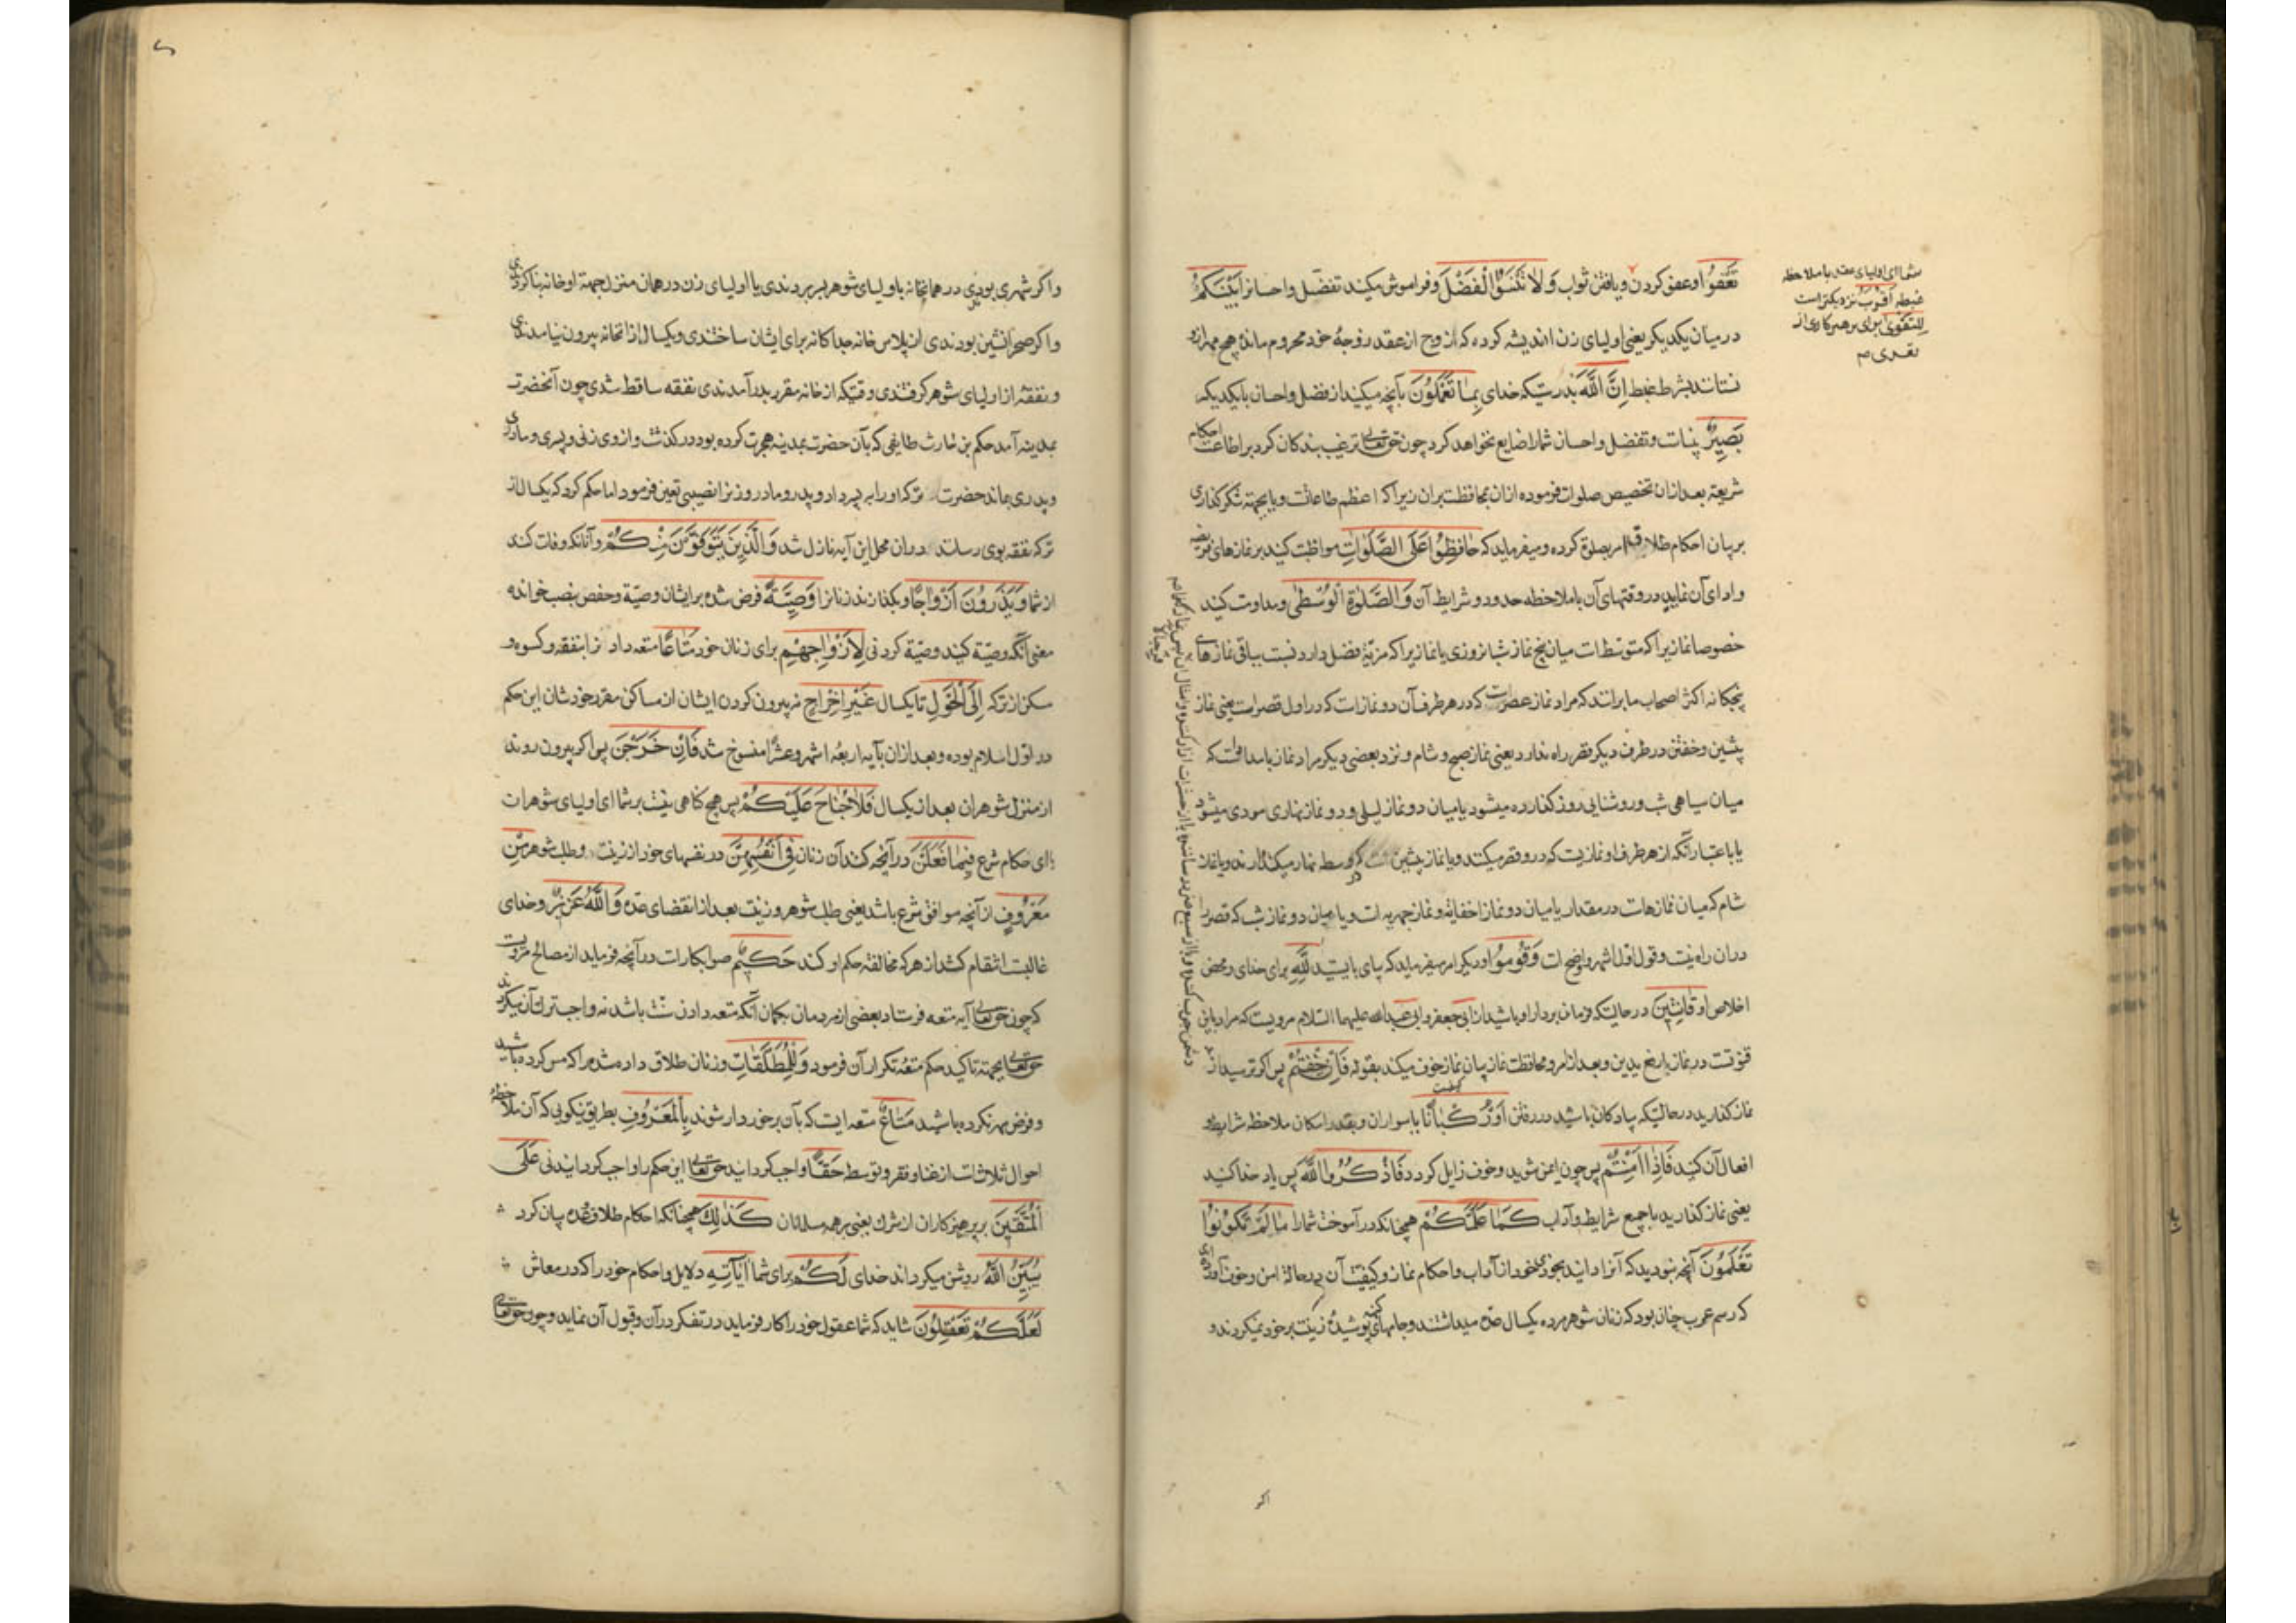 تَعْفُوا و عفو کردن و یافتن ثواب وَلَا تَنْسَوُا الْفَضْلَ و فراموش مکنید تفضل و احسان را بَيْنَكُمْ
در میان یکدیکر یعنی اولیای زن اندیشه کرده که ازوج از عقد زوجهٔ خود محروم مانده هیچ مهر ازو
نستانند بشرط غبطه اِنَّ اللَّهَ بدرستیکه خدای بِمَا تَعْمَلُونَ بآنچه میکنید از فضل و احسان با یکدیکر
بَصِيرٌ بیناست و تفضل و احسان شما را ضایع نخواهد کرد چون حقتعالی ترغیب بندکان کرد بر اطاعت احکام
شریعة بعد از ان تخصیص صلوات فرموده از ان بمحافظت بران زیرا که اعظم طاعاتست و یا بجهته شکر کذاری
بر بیان احکام طلاق امر بصلوة کرده و میفرماید که حَافِظُوا عَلَى الصَّلَوَاتِ مواظبت کنید بر نمازهای فریضه
و ادای آن نمایید در وقتهای آن با ملاحظه حدود و شرایط آن وَالصَّلٰوةِ الْوُسْطٰى و مداومت کنید
خصوصا نمازیرا که متوسط است میان پنج نماز شبانروزی یا نمازیرا که مزیة فضل دارد نسبت بباقی نمازهای
پنجکانه اکثر اصحاب ما برانند که مراد نماز عصرست که در هر طرف آن دو نماز است که در اول قصر است یعنی نماز
پیشین و خفتن در طرف دیکر قصر راه ندارد یعنی نماز صبح و شام و نزد بعضی دیکر مراد نماز بامداد است که
میان سیاهی شب و روشنایی روز کذارده میشود یا میان دو نماز لیلی و دو نماز نهاری مودی میشود
یا باعتبار آنکه از هر طرف او نمازیست که درو قصر میکنند و یا نماز پیشین است که در وسط نهار میکذارند و یا نماز
شام که میان نمازهاست در مقدار یا میان دو نماز اخفاتیه و نماز جهریه است و یا میان دو نماز شب که قصر
دران راه نیست و قول اول اشهر و اوضح است وَقُومُوا و دیکر امر میفرماید که بپای بایستید لِلَّهِ برای خدای و محض
اخلاص او قَانِتِينَ در حالتیکه فرمان بردار او باشید از ابی جعفر و ابی عبدالله علیهما السلام مرویست که مراد باین
قنوتست در نماز با رفع یدین و بعد از امر و محافظت نماز بیان نماز خوف میکند بقوله فَاِنْ خِفْتُمْ پس اکر ترسید از
نماز کذارید در حالتیکه پیادکان باشید در رفتن اَوْ رُكْبَانًا یا سواران و بقدر امکان ملاحظه شرایط و
افعال آن کنید فَاِذَا اَمِنْتُمْ پس چون ایمن شوید و خوف زایل کردد فَاذْكُرُوا اللَّهَ پس یاد خدا کنید
یعنی نماز کذارید با جمیع شرایط و آداب كَمَا عَلَّمَكُمْ همچنانکه در آموخت شما را مَا لَمْ تَكُونُوا
تَعْلَمُونَ آنچه نبودید که آنرا دانید بخودی خود از آداب و احکام نماز و کیفیت آن در حالة امن و خوف آورده‌اند
که رسم عرب چنان بود که زنان شوهر مرده یکسال عده میداشتند و جامهای کهنه پوشیده زینت بر خود نمیکردند و
اکر
شما ای اولیای عقد با ملاحظه
غبطه اَقْرَبُ نزدیکتر است
لِلتَّقْوٰى برای پرهیزکاری از
تعدی م
و اکر شهری بودندی در همانخانه با ولیای شوهر بسر بردندی یا اولیای زن در همان منزل جهته او خانه بنا کردندی
و اکر صحرا نشین بودندی از پلاس خانه جداکانه برای ایشان ساختندی و یکسال از انخانه بیرون نیامدندی
و نفقه از اولیای شوهر کرفتندی وقتیکه از خانه مقرر بدر آمدندی نفقه ساقط شدی چون آنحضرت
بمدینه آمد حکم بن حارث طایفی که بآن حضرت بمدینه هجرت کرده بود در کذشت و ازوی زنی و پسری و مادری
و پدری بماند حضرت ترکه او را به پسر داد و پدر و مادر و زنرا نصیبی تعین فرمود اما حکم کرد که یکسال از
ترکه نفقه بوی رسانند دران محل این آیه نازل شد وَالَّذِينَ يُتَوَفَّوْنَ مِنْكُمْ و آنانکه وفات کنند
از شما وَيَذَرُونَ اَزْوَاجًا و بکذارند زنانرا وَصِيَّةً فرض شده بر ایشان وصیة و حفص بنصب خوانده
معنی آنکه وصیة کنند وصیة کردنی لِاَزْوَاجِهِمْ برای زنان خود مَتَاعًا متعه دادنرا بنفقه و کسوه و
سکن از ترکه اِلَى الْحَوْلِ تا یکسال غَيْرَ اِخْرَاجٍ نه بیرون کردن ایشان از مساکن مقرر خودشان این حکم
در اول اسلام بوده و بعد از ان بآیه اربعه اشهر و عشرا منسوخ شد فَاِنْ خَرَجْنَ پس اکر بیرون روند
از منزل شوهران بعد از یکسال فَلَا جُنَاحَ عَلَيْكُمْ پس هیچ کناهی نیست بر شما ای اولیای شوهران
یا ای حکام شرع فِيمَا فَعَلْنَ در آنچه کنند آن زنان فِي اَنْفُسِهِنَّ در نفسهای خود از زینت و طلب شوهر مِنْ
مَعْرُوفٍ از آنچه موافق شرع باشد یعنی طلب شوهر و زینت بعد از انقضای عده وَاللَّهُ عَزِيزٌ و خدای
غالبست انتقام کشد از هر که مخالفة حکم او کند حَكِيمٌ صواب کارست در آنچه فرماید از مصالح مرویست
که چون حقتعالی آیه متعه فرستاد بعضی از مردمان بکمان آنکه متعه دادن سنت باشد نه واجب ترک آن میکردند
حقتعالی بجهته تاکید حکم متعه تکرار آن فرمود وَلِلْمُطَلَّقَاتِ و زنان طلاق داده شده را که مس کرده باشید
و فرض مهر نکرده باشید مَتَاعٌ متعه ایست که بآن برخوردار شوند بِالْمَعْرُوفِ بطریق نیکویی که آن ملاحظهٔ
احوال ثلاثست از غنا و فقر و توسط حَقًّا واجب کردانید حقتعالی این حکم را واجب کردانیدنی عَلَى
الْمُتَّقِينَ بر پرهیزکاران از شرک یعنی بر همه مسلمانان كَذَلِكَ همچنانکه احکام طلاق و عده بیان کرد
يُبَيِّنُ اللَّهُ روشن میکرداند خدای لَكُمْ برای شما اٰيَاتِهِ دلایل و احکام خود را که در معاش
لَعَلَّكُمْ تَعْقِلُونَ شاید که شما عقول خود را کار فرماید در تفکر دران و قبول آن نماید و چون حقتعالی